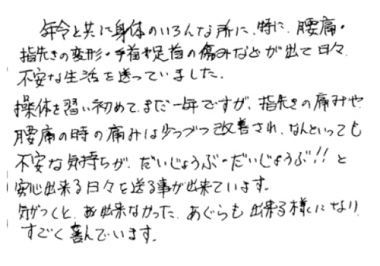 年令と共に身体のいろんな所に、特に、腰痛・
指先きの変形・手首や足首の痛みなどが出て日々、
不安な生活を送っていました。
操体を習い初めて、まだ一年ですが、指先きの痛みや
腰痛の時の痛みは少つづつ改善され、なんといっても
不安な気持ちが、だいじょうぶ・だいじょうぶ!! と
安心出来る日々を送る事が出来ています。
気がつくと、出来なかった、あぐらも出来る様になり
すごく喜んでいます。